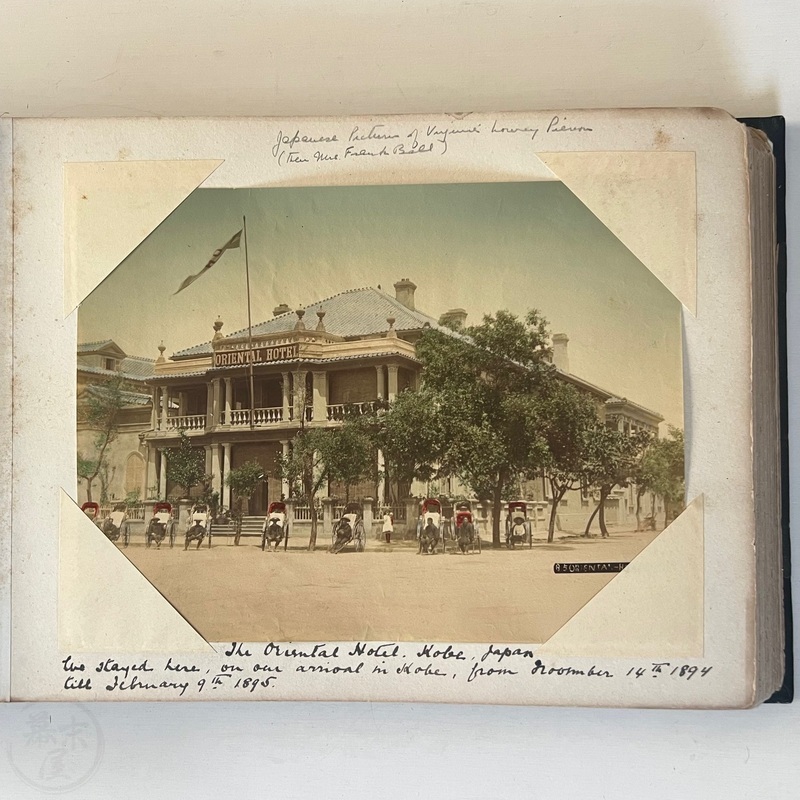 Japanese Pictures of Virginia Lowrey Pierson
(then Mrs Frank Ball)
ORIENTAL HOTEL
ORIENTAL-H
The Oriental Hotel. Kobe, Japan
We stayed here, on our arrival in Kobe, from November 14th 1894
till February 9th 1895.
幕末屋